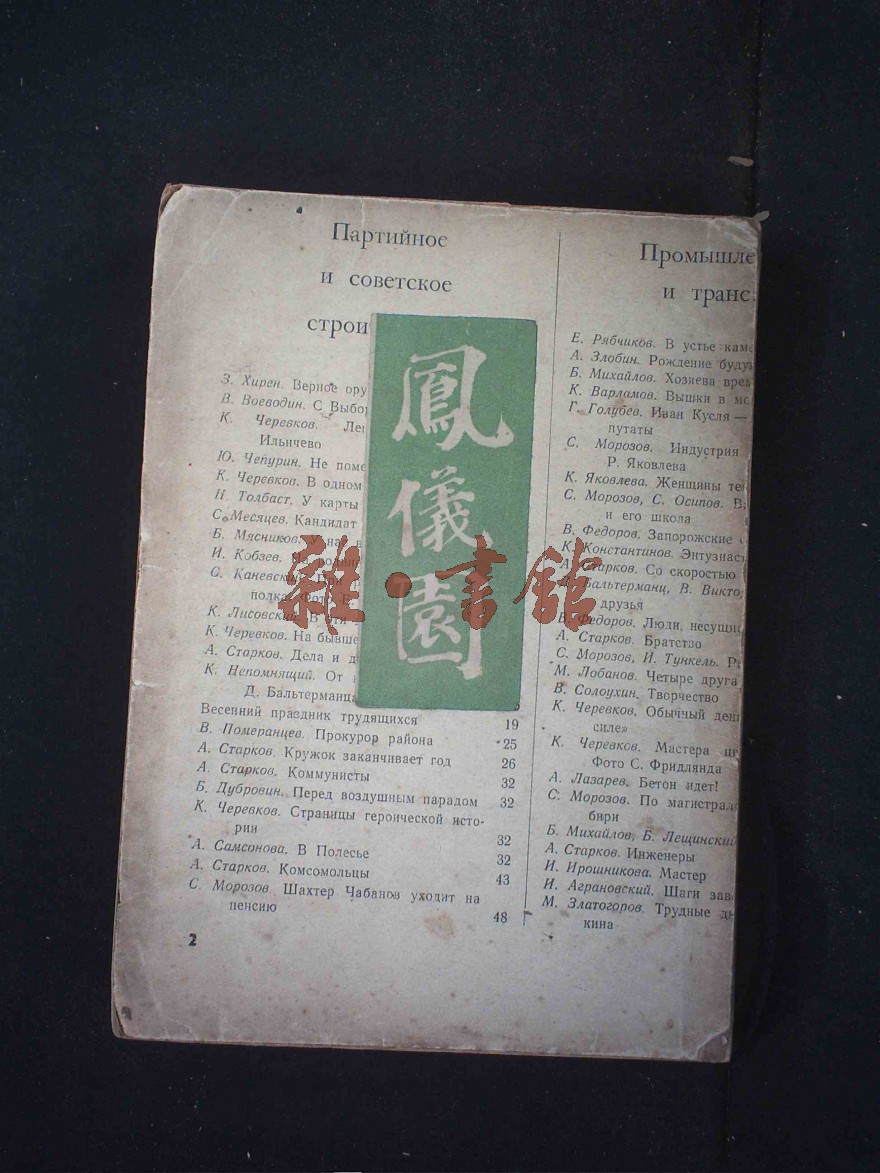 Партийное
и советское
З. Хирен. Верное
В. Воеводин. С
К. Черевков.
Ильичево
Ю. Чепурин. Не
К. Черевков. В одном
Н. Толбаст. У карты
С. Месяцев. Кандидат
Б. Мясников.
И. Кобзев.
С. Каневский. При
полка. Фото
К. Лисовский. В
К. Черевков. На
А. Старков. Дела и
К. Непомнящий. От
Д. Бальтерманца
Весенний праздник трудящихся 19
В. Померанцев. Прокурор района 25
А. Старков. Кружок заканчивает год 26
А. Старков. Коммунисты 32
Б. Дубровин. Перед воздушным парадом 32
К. Черевков. Страницы героической исто-
рии 32
А. Самсонова. В Полесье 32
А. Старков. Комсомольцы 43
С. Морозов. Шахтер Чабанов уходит на
пенсию 48
2
鳳儀園
雜·書館
и
Е. Рябчиков. В устье
А. Злобин. Рождение
Б. Михайлов. Хозяева
К. Варламов. Вышки в
Г. Голубев. Иван Кусля —
путаты
С. Морозов. Индустрия
Р. Яковлева
К. Яковлева. Женщины
С. Морозов, С. Осипов.
и его школа
В. Федоров. Запорожские
К. Константинов.
А. Старков. Со скоростью
Бальтерманц, В.
друзья
В. Федоров. Люди,
А. Старков. Братство
С. Морозов, И. Тункель.
М. Лобанов. Четыре друга
В. Солоухин. Творчество
К. Черевков. Обычный
силе»
К. Черевков. Мастера
Фото С. Фридлянда
А. Лазарев. Бетон идет!
С. Морозов. По
бири
Б. Михайлов, Б. Лещинский
А. Старков. Инженеры
И. Ирошникова. Мастер
И. Аграновский. Шаги
М. Златогоров. Трудные
кина